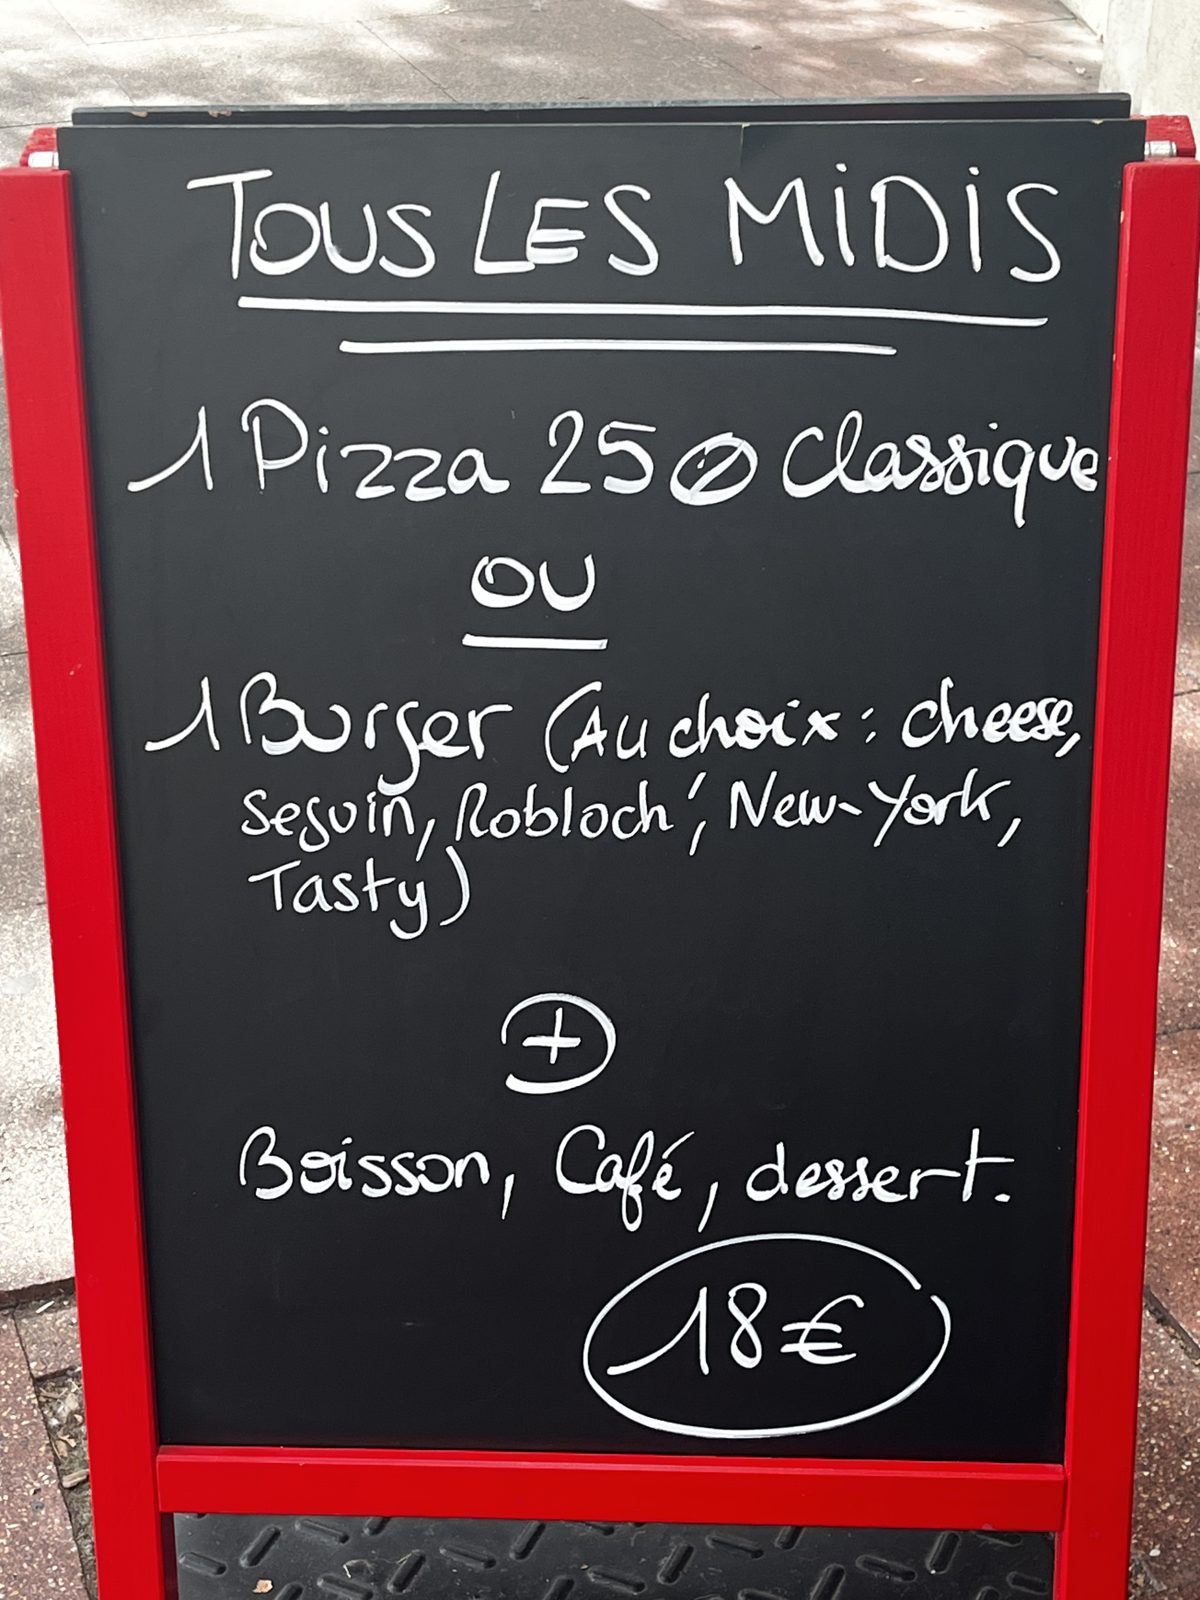 TOUS LES MIDIS
1 Pizza 25 ∅ Classique
OU
1 Burger (Au choix : cheese,
seguin, Robloch', New-York,
Tasty)
+
Boisson, Café, dessert.
18€